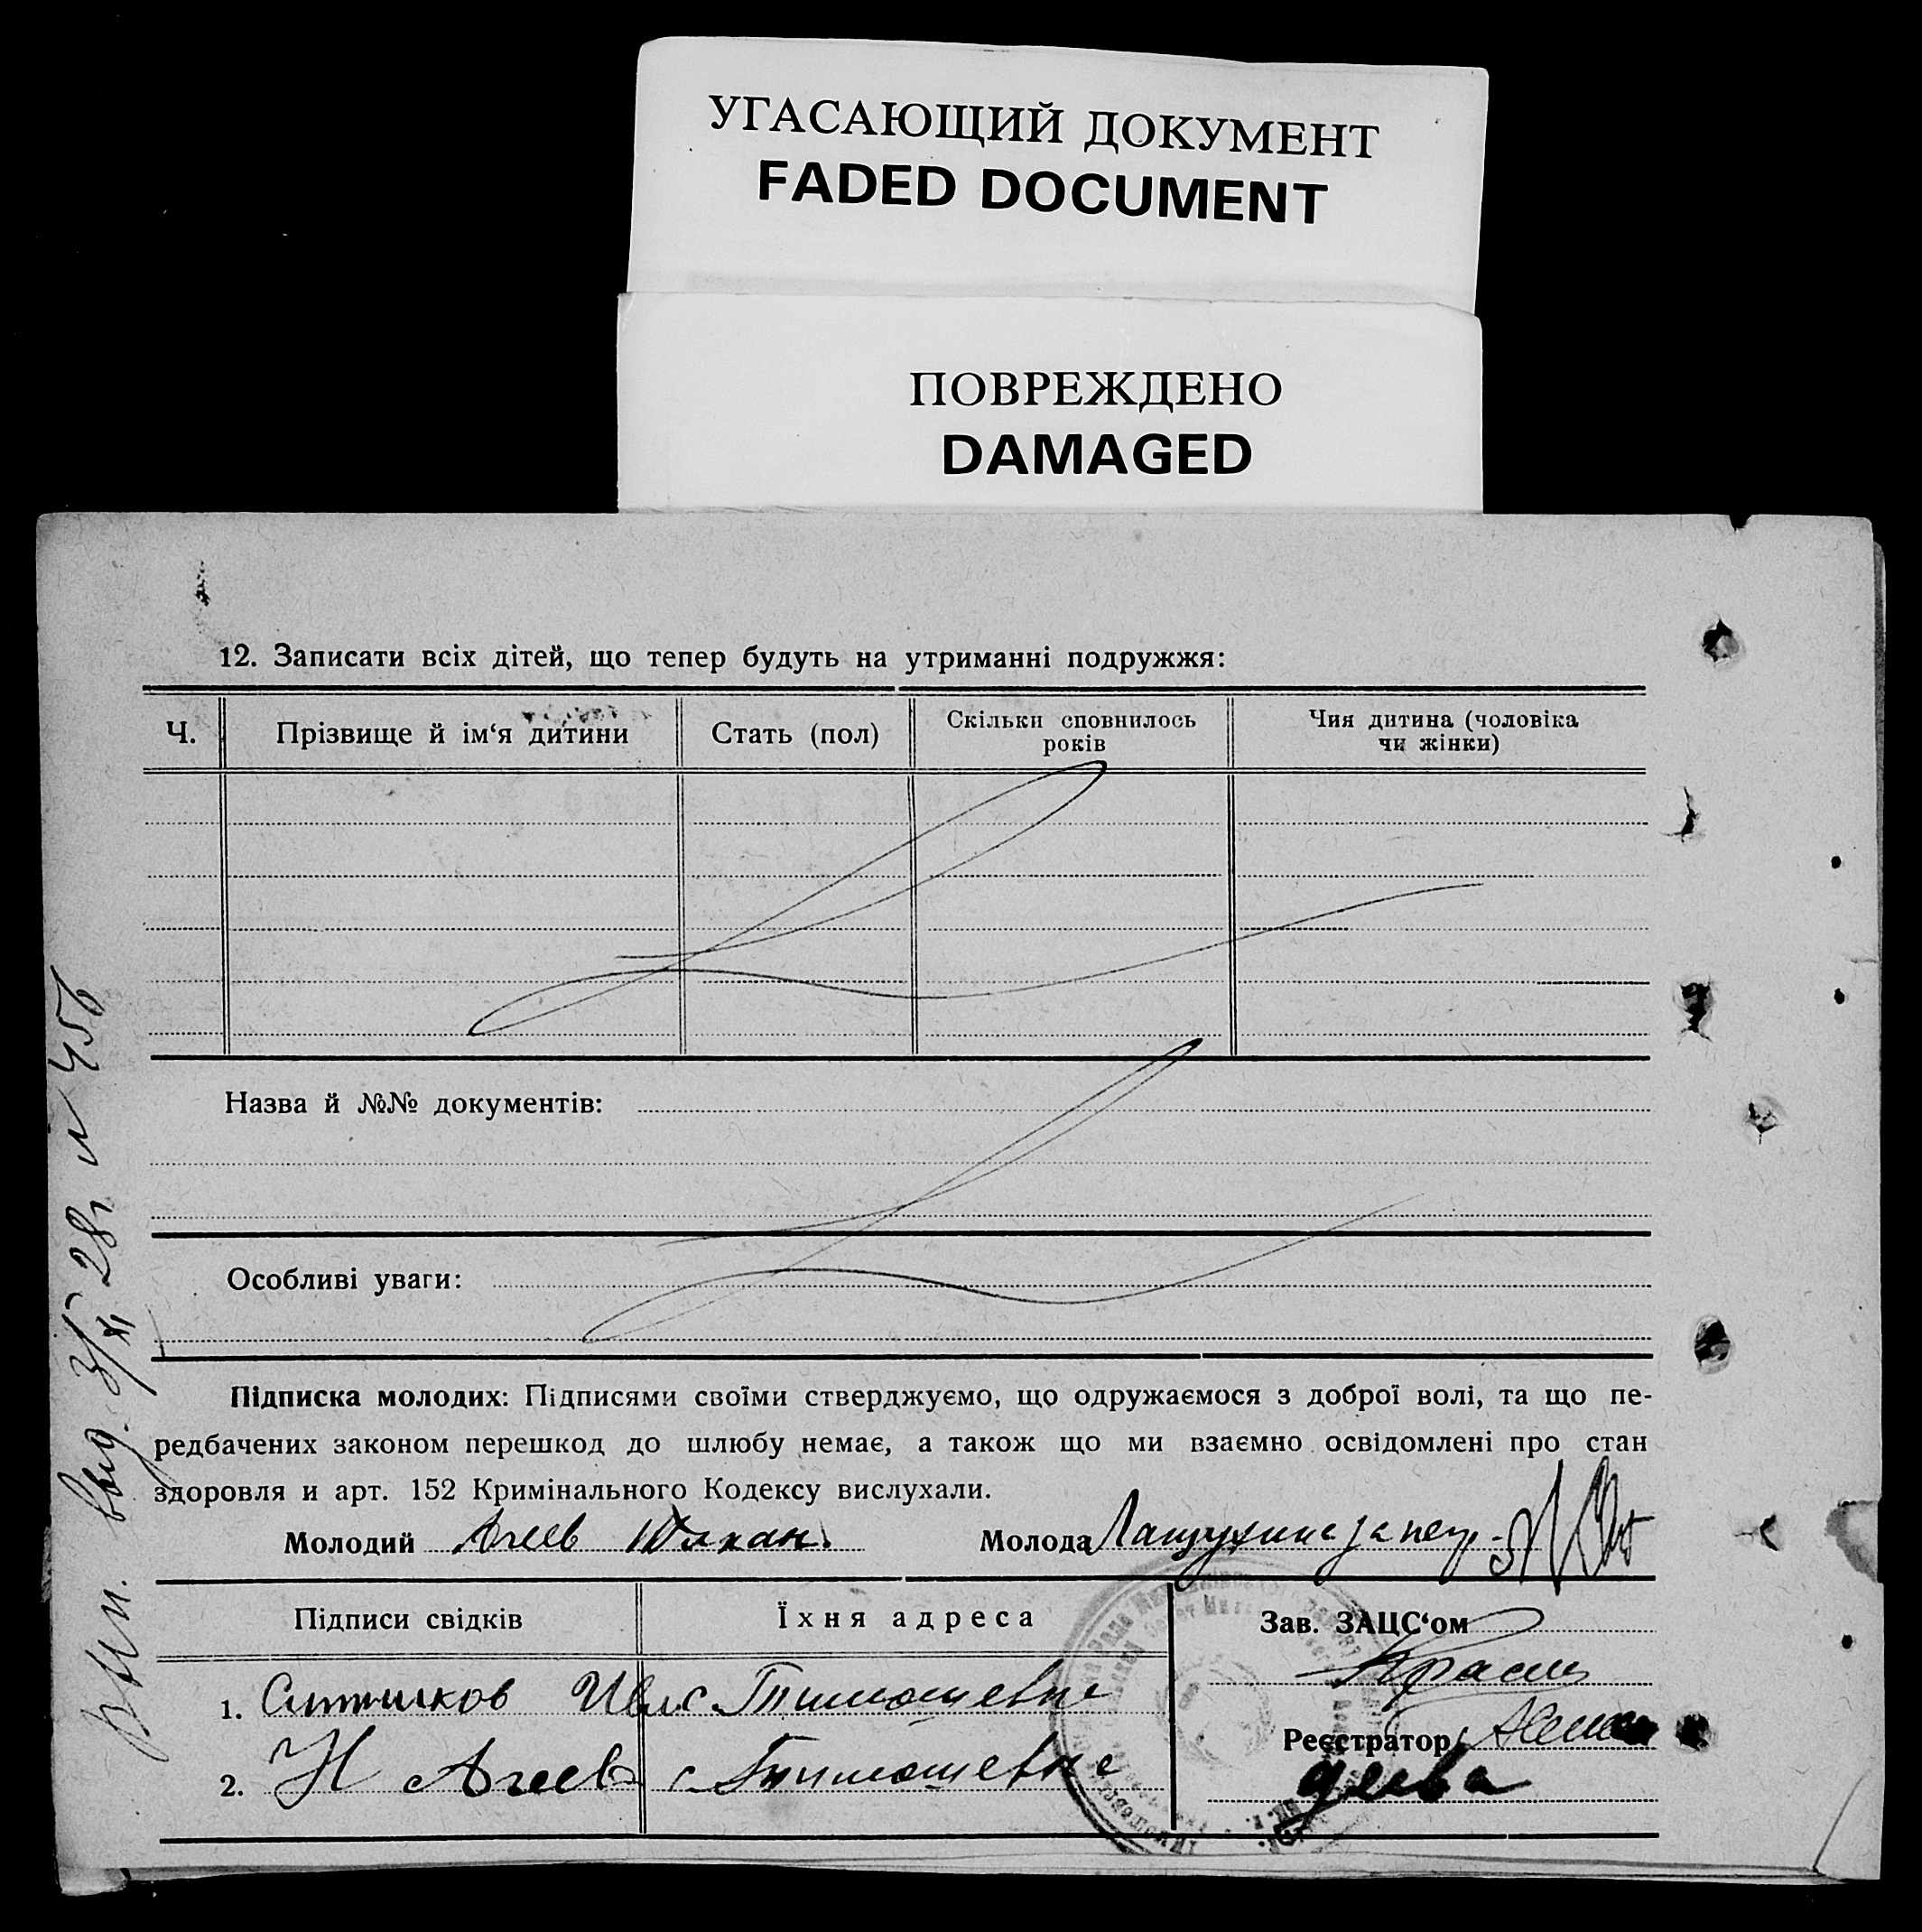 УГАСАЮЩИЙ ДОКУМЕНТ
FADED DOCUMENT
ПОВРЕЖДЕНО
DAMAGED
12. Записати всіх дітей, що тепер будуть на утриманні подружжя:
Ч.
Прізвище й ім‘я дитини
Стать (пол)
Скільки сповнилось
років
Чия дитина (чоловіка
чи жінки)
Назва й №№ документів:
Особливі уваги:
Підписка молодих: Підписями своїми стверджуємо, що одружаємося з доброї волі, та що пе-
редбачених законом перешкод до шлюбу немає, а також що ми взаємно освідомлені про стан
здоровля и арт. 152 Кримінального Кодексу вислухали.
Молодий Агеев
Молода
Підписи свідків
Їхня адреса
Зав. ЗАЦС‘ом
1. Ситников с. Тимошевке
Реєстратор
2. Н Агеев с. Тимошевке
выд. 3/XI 28г № 456